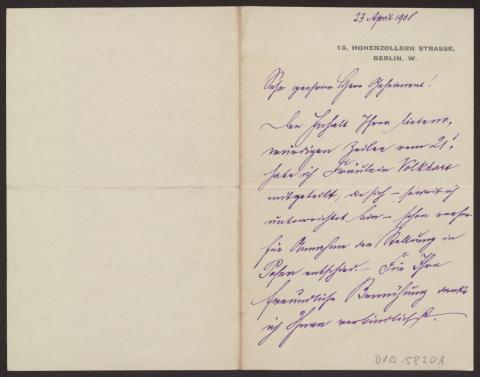 23 April 1908
13, HOHENZOLLERN STRASSE,
BERLIN, W.
Sehr geehrter Herr Geheimrat!
Den Inhalt Ihrer liebens-
würdigen Zeilen vom 21.
habe ich Fräulein Volkhart
mitgeteilt, die sich – soweit ich
unterrichtet bin – schon vorher
für Annahme der Stellung in
Posen entschied. – Für Ihre
freundliche Bemühung danke
ich Ihnen verbindlichst.